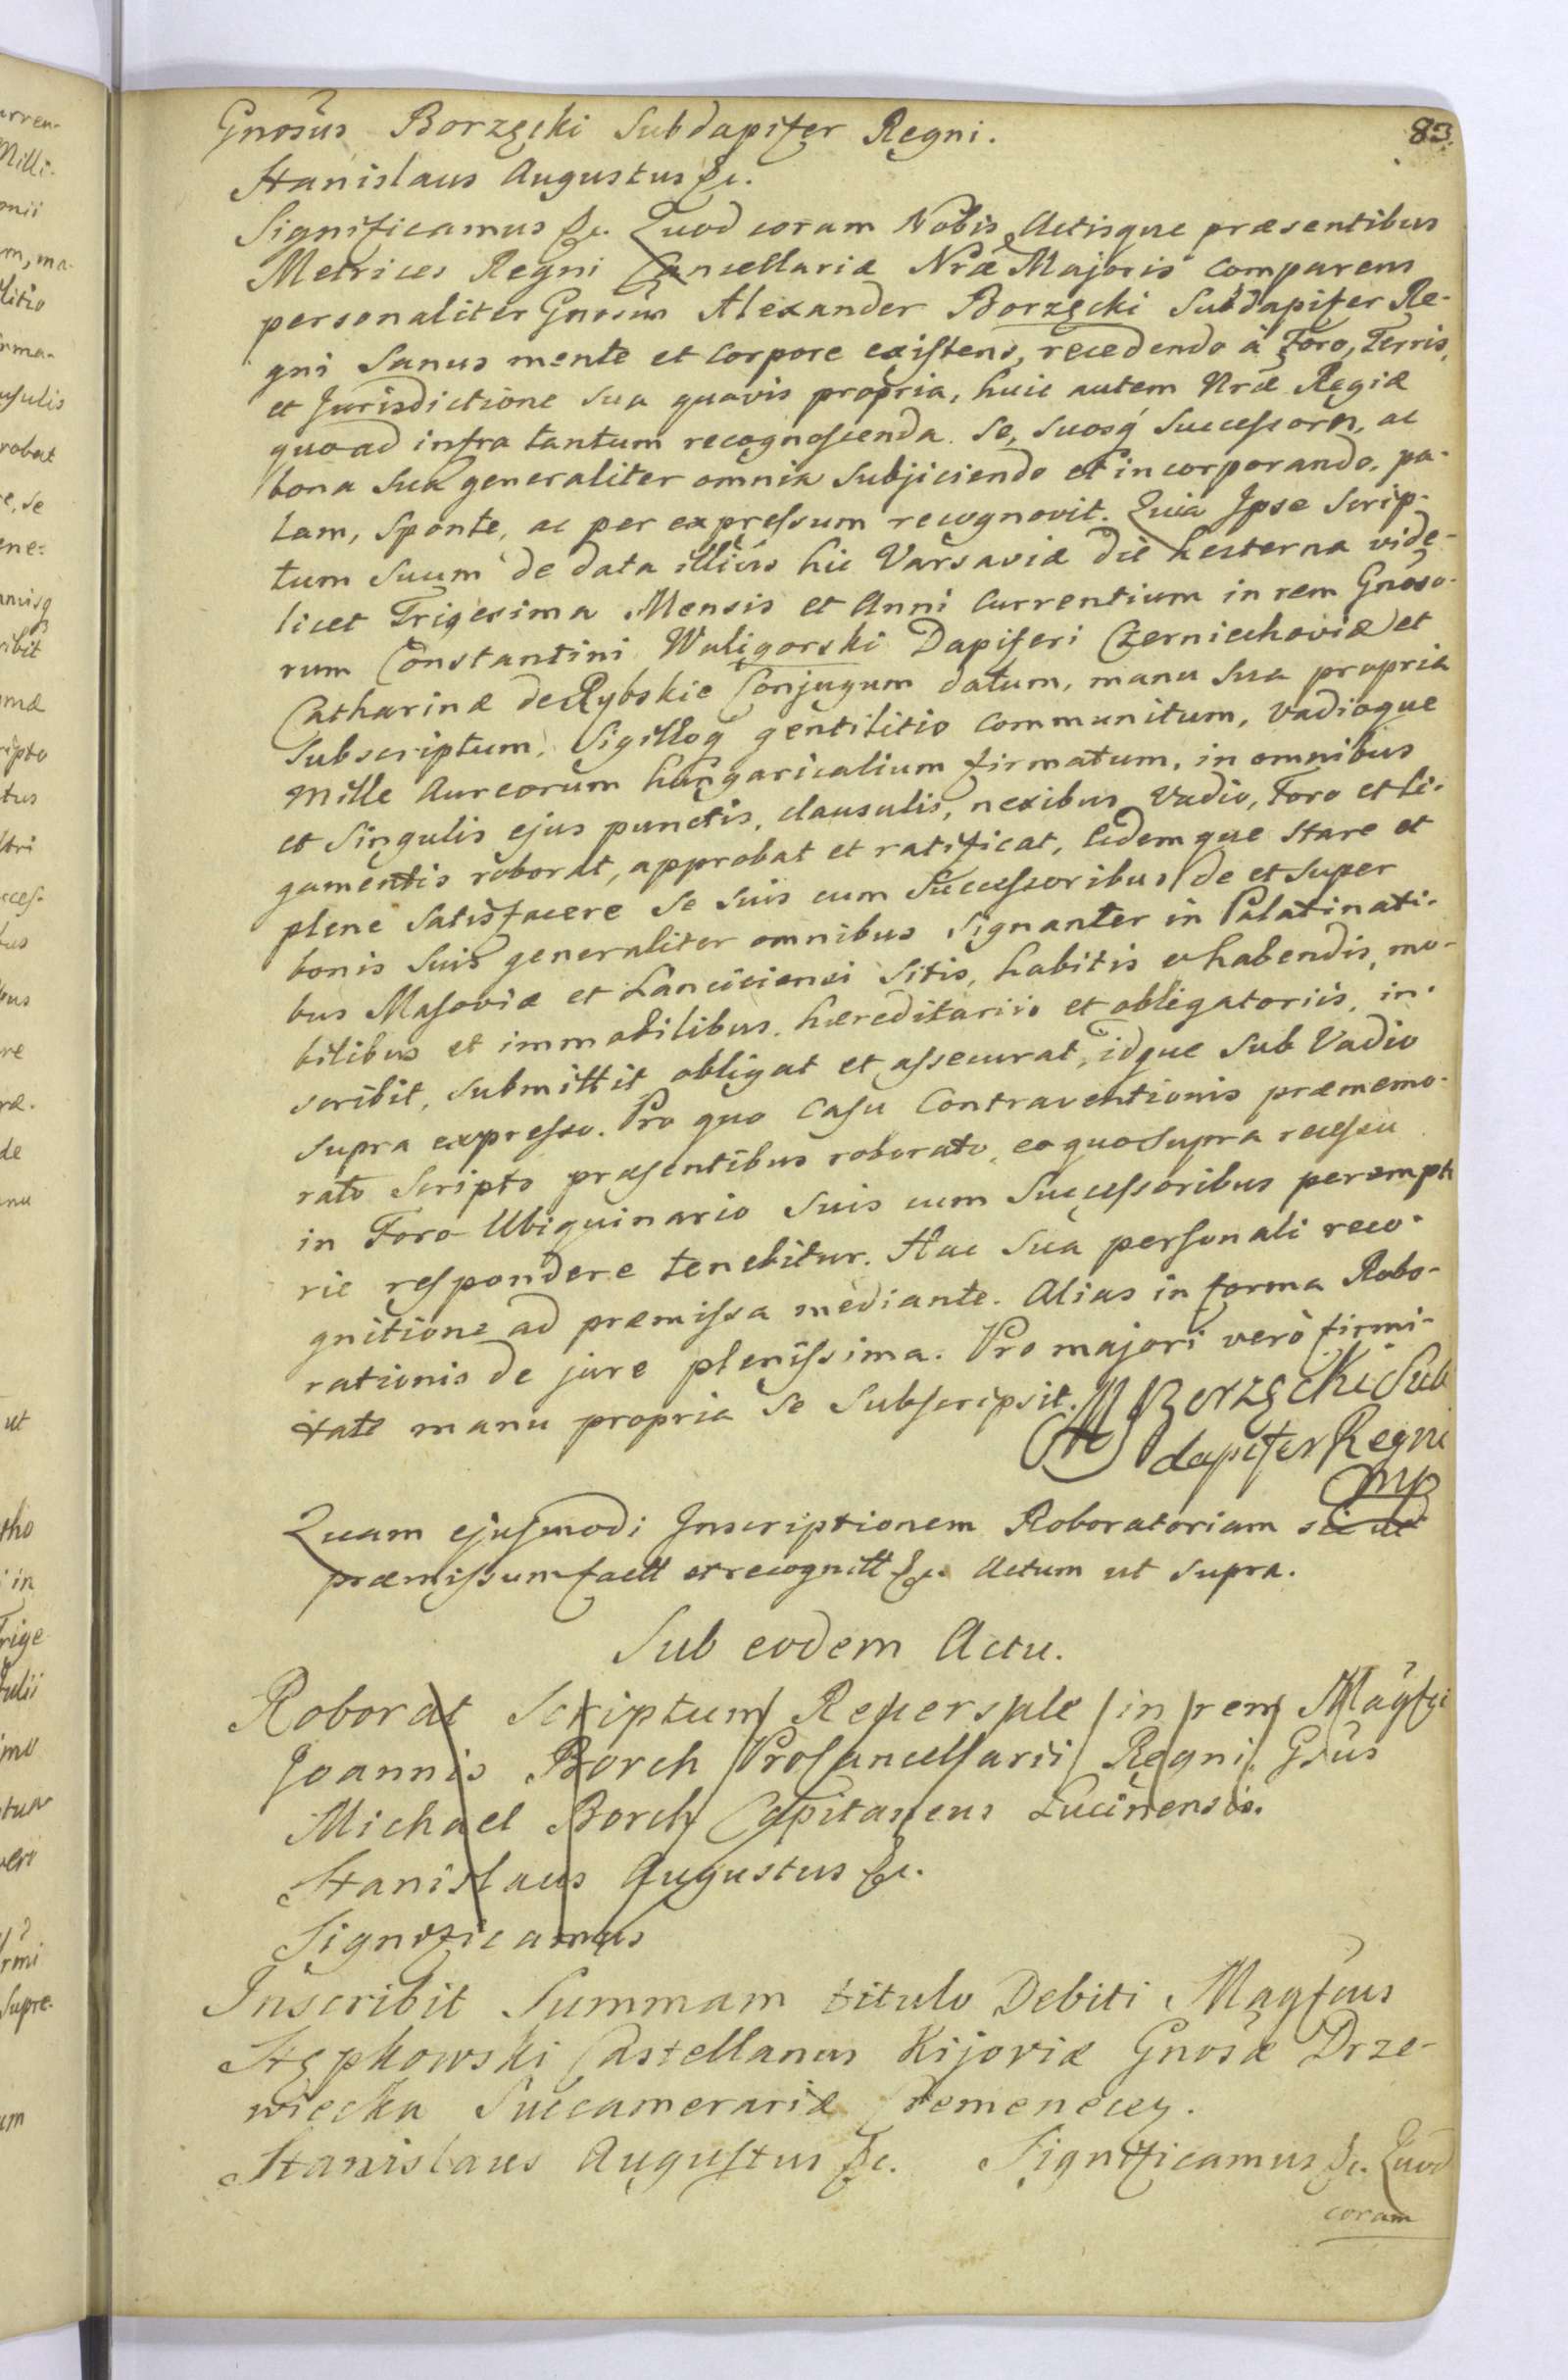 83.
Gnosus Borzęcki Subdapifer Regni.
Stanislaus Augustus &c.
Significamus &c. Quod coram Nobis Actisque præsentibus
Metrices Regni Cancellariæ Nræ Majoris comparens
personaliter Gnosus Alexander Borzęcki Subdapifer Re-
gni Sanus mente et corpore existens, recedendo à Foro, Terris,
et Jurisdictione sua quavis propria, huic autem Nræ Regiæ
quoad infra tantum recognoscenda. Se, suosq successores, ac
bona sua generaliter omnia subjiciendo et incorporando, pa-
lam, sponte, ac per expressum recognovit. Quia Ipse Scrip-
tum suum de data illius hic Varsaviæ die hesterna vide-
licet Trigesima Mensis et Anni Currentium in rem Gnoso-
rum Constantini Waligorski Dapiferi Czerniechoviæ et
Catharinæ de Rybskie Conjugum datum, manu sua propria
subscriptum, Sigilloq gentilitio communitum, vadioque
Mille Aureorum hungaricalium firmatum, in omnibus
et singulis ejus punctis, clausulis, nexibus Vadio, Foro et Li-
gamentis roborat, approbat et ratificat, Eidemque stare et
plene satisfacere se suis cum Successoribus de et super
bonis suis generaliter omnibus signanter in Palatinati-
bus Masoviæ et Lanciciensi sitis, habitis et habendis, mo-
bilibus et immobilibus hæreditariis et obligatoriis, in-
scribit, submittit obligat et assecurat, idque sub Vadio
supra expresso. Pro quo casu Contraventionis præmemo-
rato Scripto præsentibus roborato, eo quo supra recessu
in Foro Ubiquinario suis cum Successoribus perempto
rie respondere tenebitur. Hac sua personali reco-
gnitione ad præmissa mediante. Alias in forma Robo-
rationis de jure plenissima. Pro majori verò firmi-
tate manu propria se subscripsit. Borzęcki Sub
dapifer Regni
mp
Quam ejusmodi Inscriptionem Roboratoriam sicut
præmissum fact et recognitt &c. Actum ut supra.
Sub eodem Actu.
Roborat Scriptum Reversale in rem Magfci
Joannis Borch ProCancellarii Regni. Gsus
Michael Borch Capitaneus Lucinensis.
Stanislaus Augustus &c.
Significamus
Inscribit Summam titulo Debiti Magfcus
Stępkowski Castellanus Kijoviæ Gnosæ Drze-
wiecka Succamerariæ Cremenecen.
Stanislaus Augustus &c. Significamus &c. Quod
coram